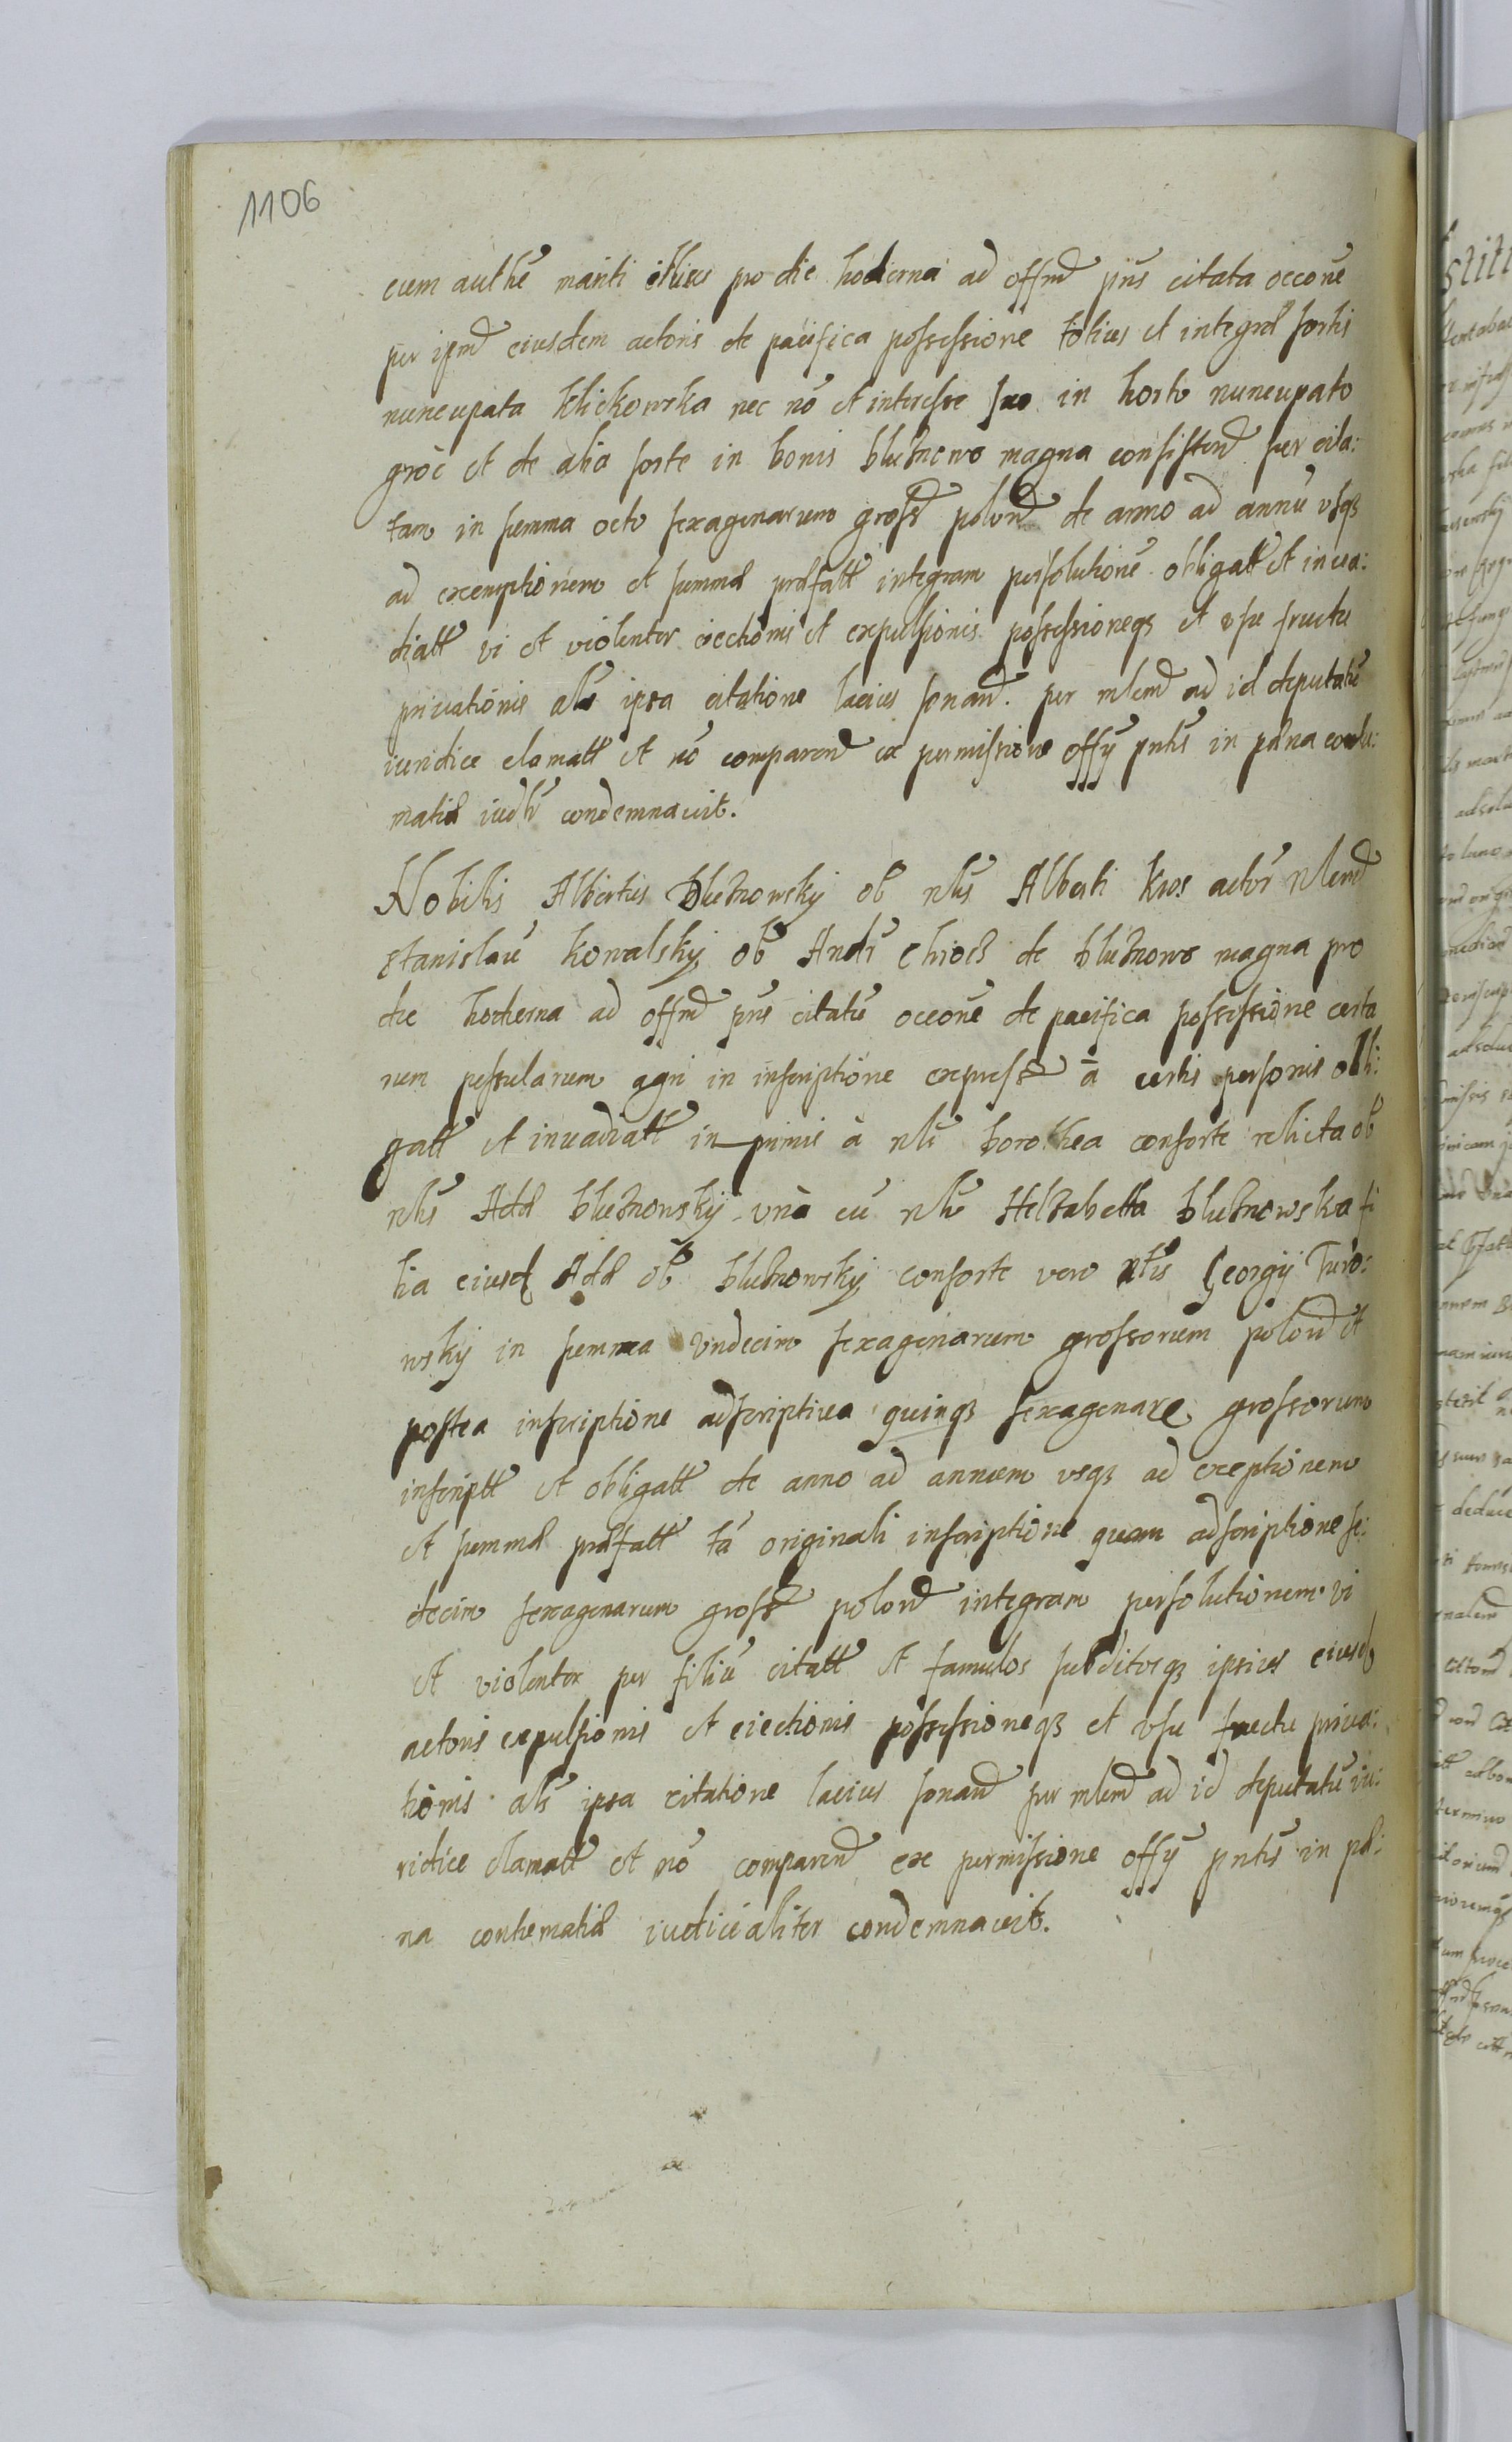 1106
cum authē mariti illius pro die hodierna ad offm̄d pn̄s citata occonē
per ipm̄ eiusdem actoris de pacifica possessione totius et integræ sortis
nuncupata Klickowska nec nō et interesse suo in horto nuncupato
gròc et de alia sorte in bonis blusnowo magna consisten̄ per cita:
tam in summa octo sexagenarum gross polon̄ de anno ad annū vsq3
ad exemptionem et summæ præfatt integram persolutionē obligatt et inua:
diatt vi et violenter eiectionis et expulsionis possessioneq3 et vsu fructu
priuationis als ipsa citatione lacius sonan̄. per mlem̄ ad id deputatū
iuridice clamatt et nō comparen̄ ex permissione offy pn̄tis in pæna contu:
matiæ iudlr condemnauit.
Nobilis Albertus Blusnowsky ob nlis Alberti Kros actor nlem̄
Stanislaū Kowalsky ob Andr Chrocz de blusnowo magna pro
die hodierna ad offm̄ pn̄s citatū occonē de pacifica possessione certa
rum pessularum agri in inscriptione express à certis personis obli:
gatt et inuadiatt in primis à nli Dorothea consorte relicta ob
nlis Adæ blusnowsky vnà cū nli Helzabetta blusnowska fi
lia eiusd Adæ ob blusnowsky consorte vero nlis Georgÿ Turo:
wsky in summa vndecim sexagenarum grossorum polon̄ et
postea inscriptione adscriptiua quinq3 sexagenare grossorum
inscriptt et obligatt de anno ad annum vsq3 ad exeptionem
et summæ præfatt tā originali inscriptione quam adscriptione se:
decim sexagenarum gross polon̄ integram persolutionem vi
et violenter per filiū citatt et famulos subditosq3 ipsius eiusd
actoris expulsionis et eiectionis possessioneq3 et vsu fructu priua:
tionis als ipsa citatione lacius sonan̄ per mlem̄ ad id deputatū iu:
ridice clamatt et nō comparen̄ ex permissione offy pn̄tis in pæ:
na contumatiæ iudicialiter condemnauit.